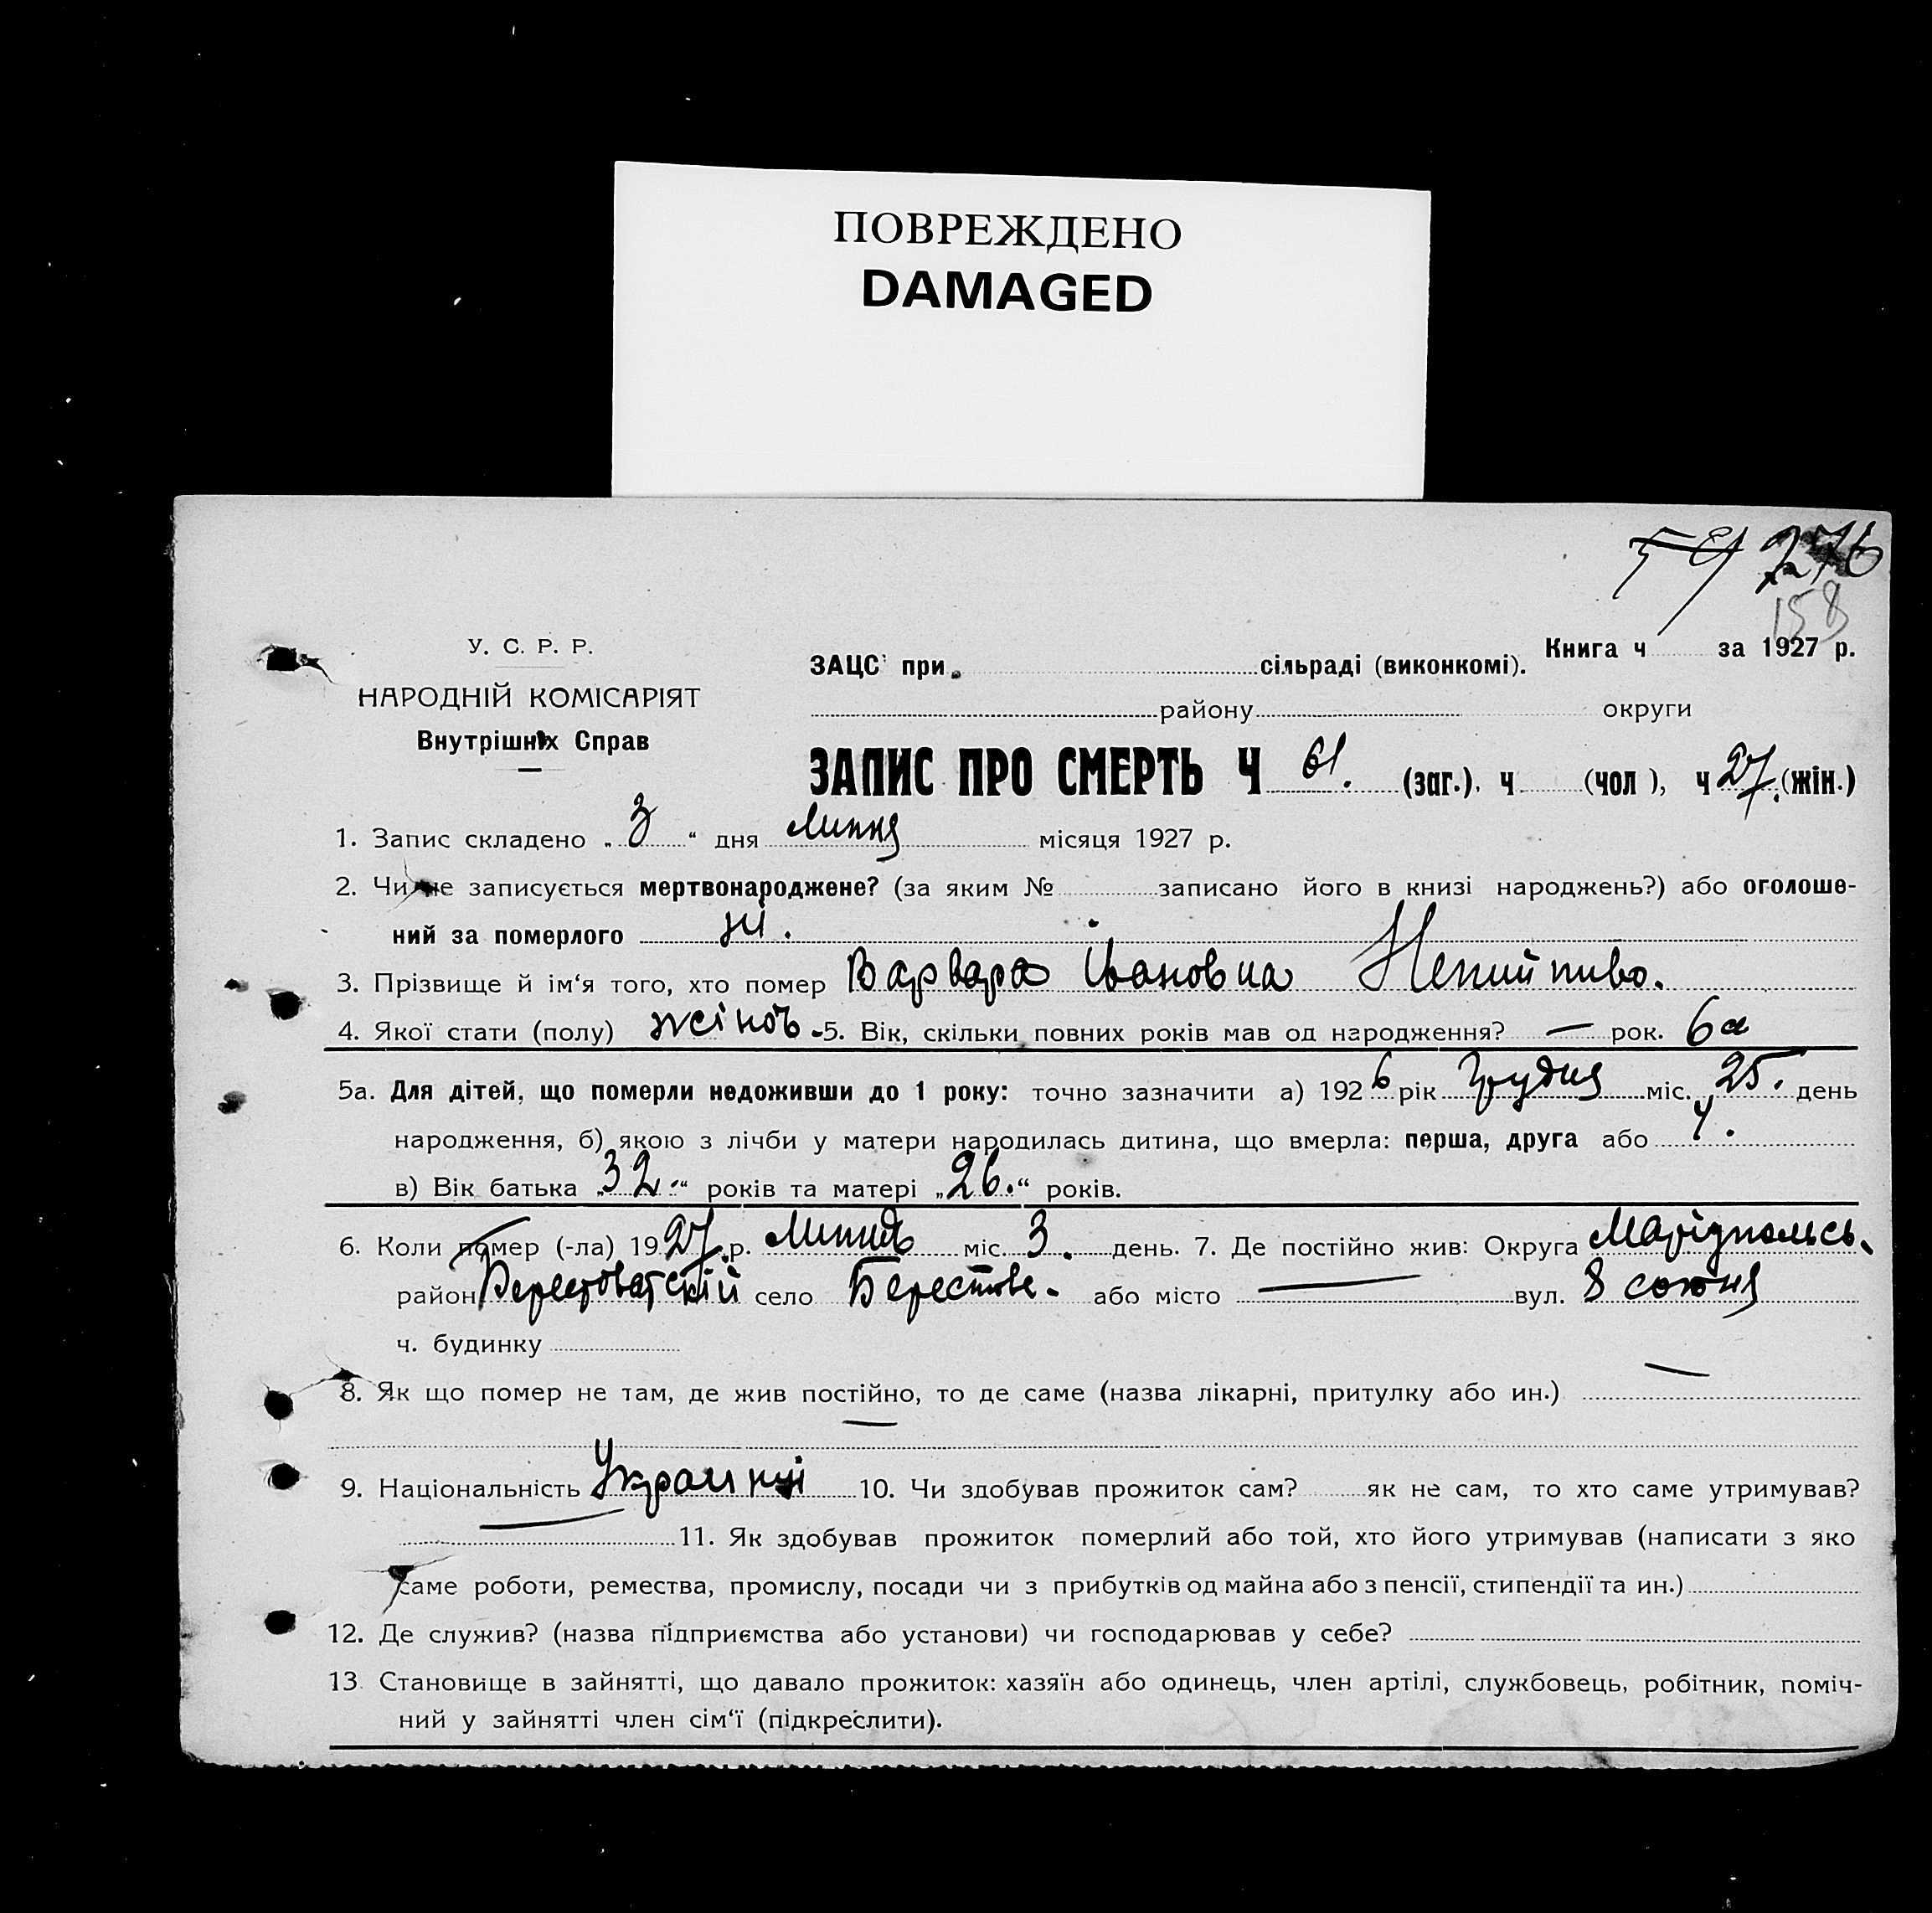 ПОВРЕЖДЕНО
DAMAGED
276
158
У. С. Р. Р.
НАРОДНІЙ КОМІСАРІЯТ
Внутрішніх Справ
Книга ч за 1927 р.
ЗАЦС при сільраді (виконкомі).
району округи
ЗАПИС ПРО СМЕРТЬ Ч 61. (заг.), ч (чол), ч 27. (жін.)
1. Запис складено „3“ дня Липня місяця 1927 р.
2. Чи не записується мертвонароджене? (за яким № записано його в книзі народжень?) або оголоше-
ний за померлого ні.
3. Прізвище й ім‘я того, хто помер Варвара Івановна Непийпиво.
4. Якої стати (полу) жіноч. 5. Вік, скільки повних років мав од народження? — рок.
5а. Для дітей, що померли недоживши до 1 року: точно зазначити а) 1926 рік Грудня міс. 25. день
народження, б) якою з лічби у матери народилась дитина, що вмерла: перша, друга або 4.
в) Вік батька „32.“ років та матері „26.“ років.
6. Коли помер (-ла) 1927 р. Липня міс. 3. день. 7. Де постійно жив: Округа Маріупольсь.
район Берестоватскій село Берестове. або місто — вул. 8 сотня
ч. будинку
8. Як що помер не там, де жив постійно, то де саме (назва лікарні, притулку або ин.) —
—
9. Національність Украинці 10. Чи здобував прожиток сам? як не сам, то хто саме утримував?
— 11. Як здобував прожиток померлий або той, хто його утримував (написати з яко
саме роботи, ремества, промислу, посади чи з прибутків од майна або з пенсії, стипендії та ин.)
12. Де служив? (назва підприємства або установи) чи господарював у себе?
13. Становище в зайнятті, що давало прожиток: хазяїн або одинець, член артілі, службовець, робітник, поміч-
ний у зайнятті член сім‘ї (підкреслити).